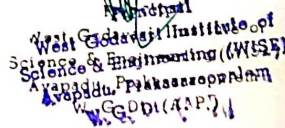 Principal
West Godavari Institute of
Science & Engineering (WISE)
Avapadu, Prakasaraopalem
W.G.Dt (A.P.)